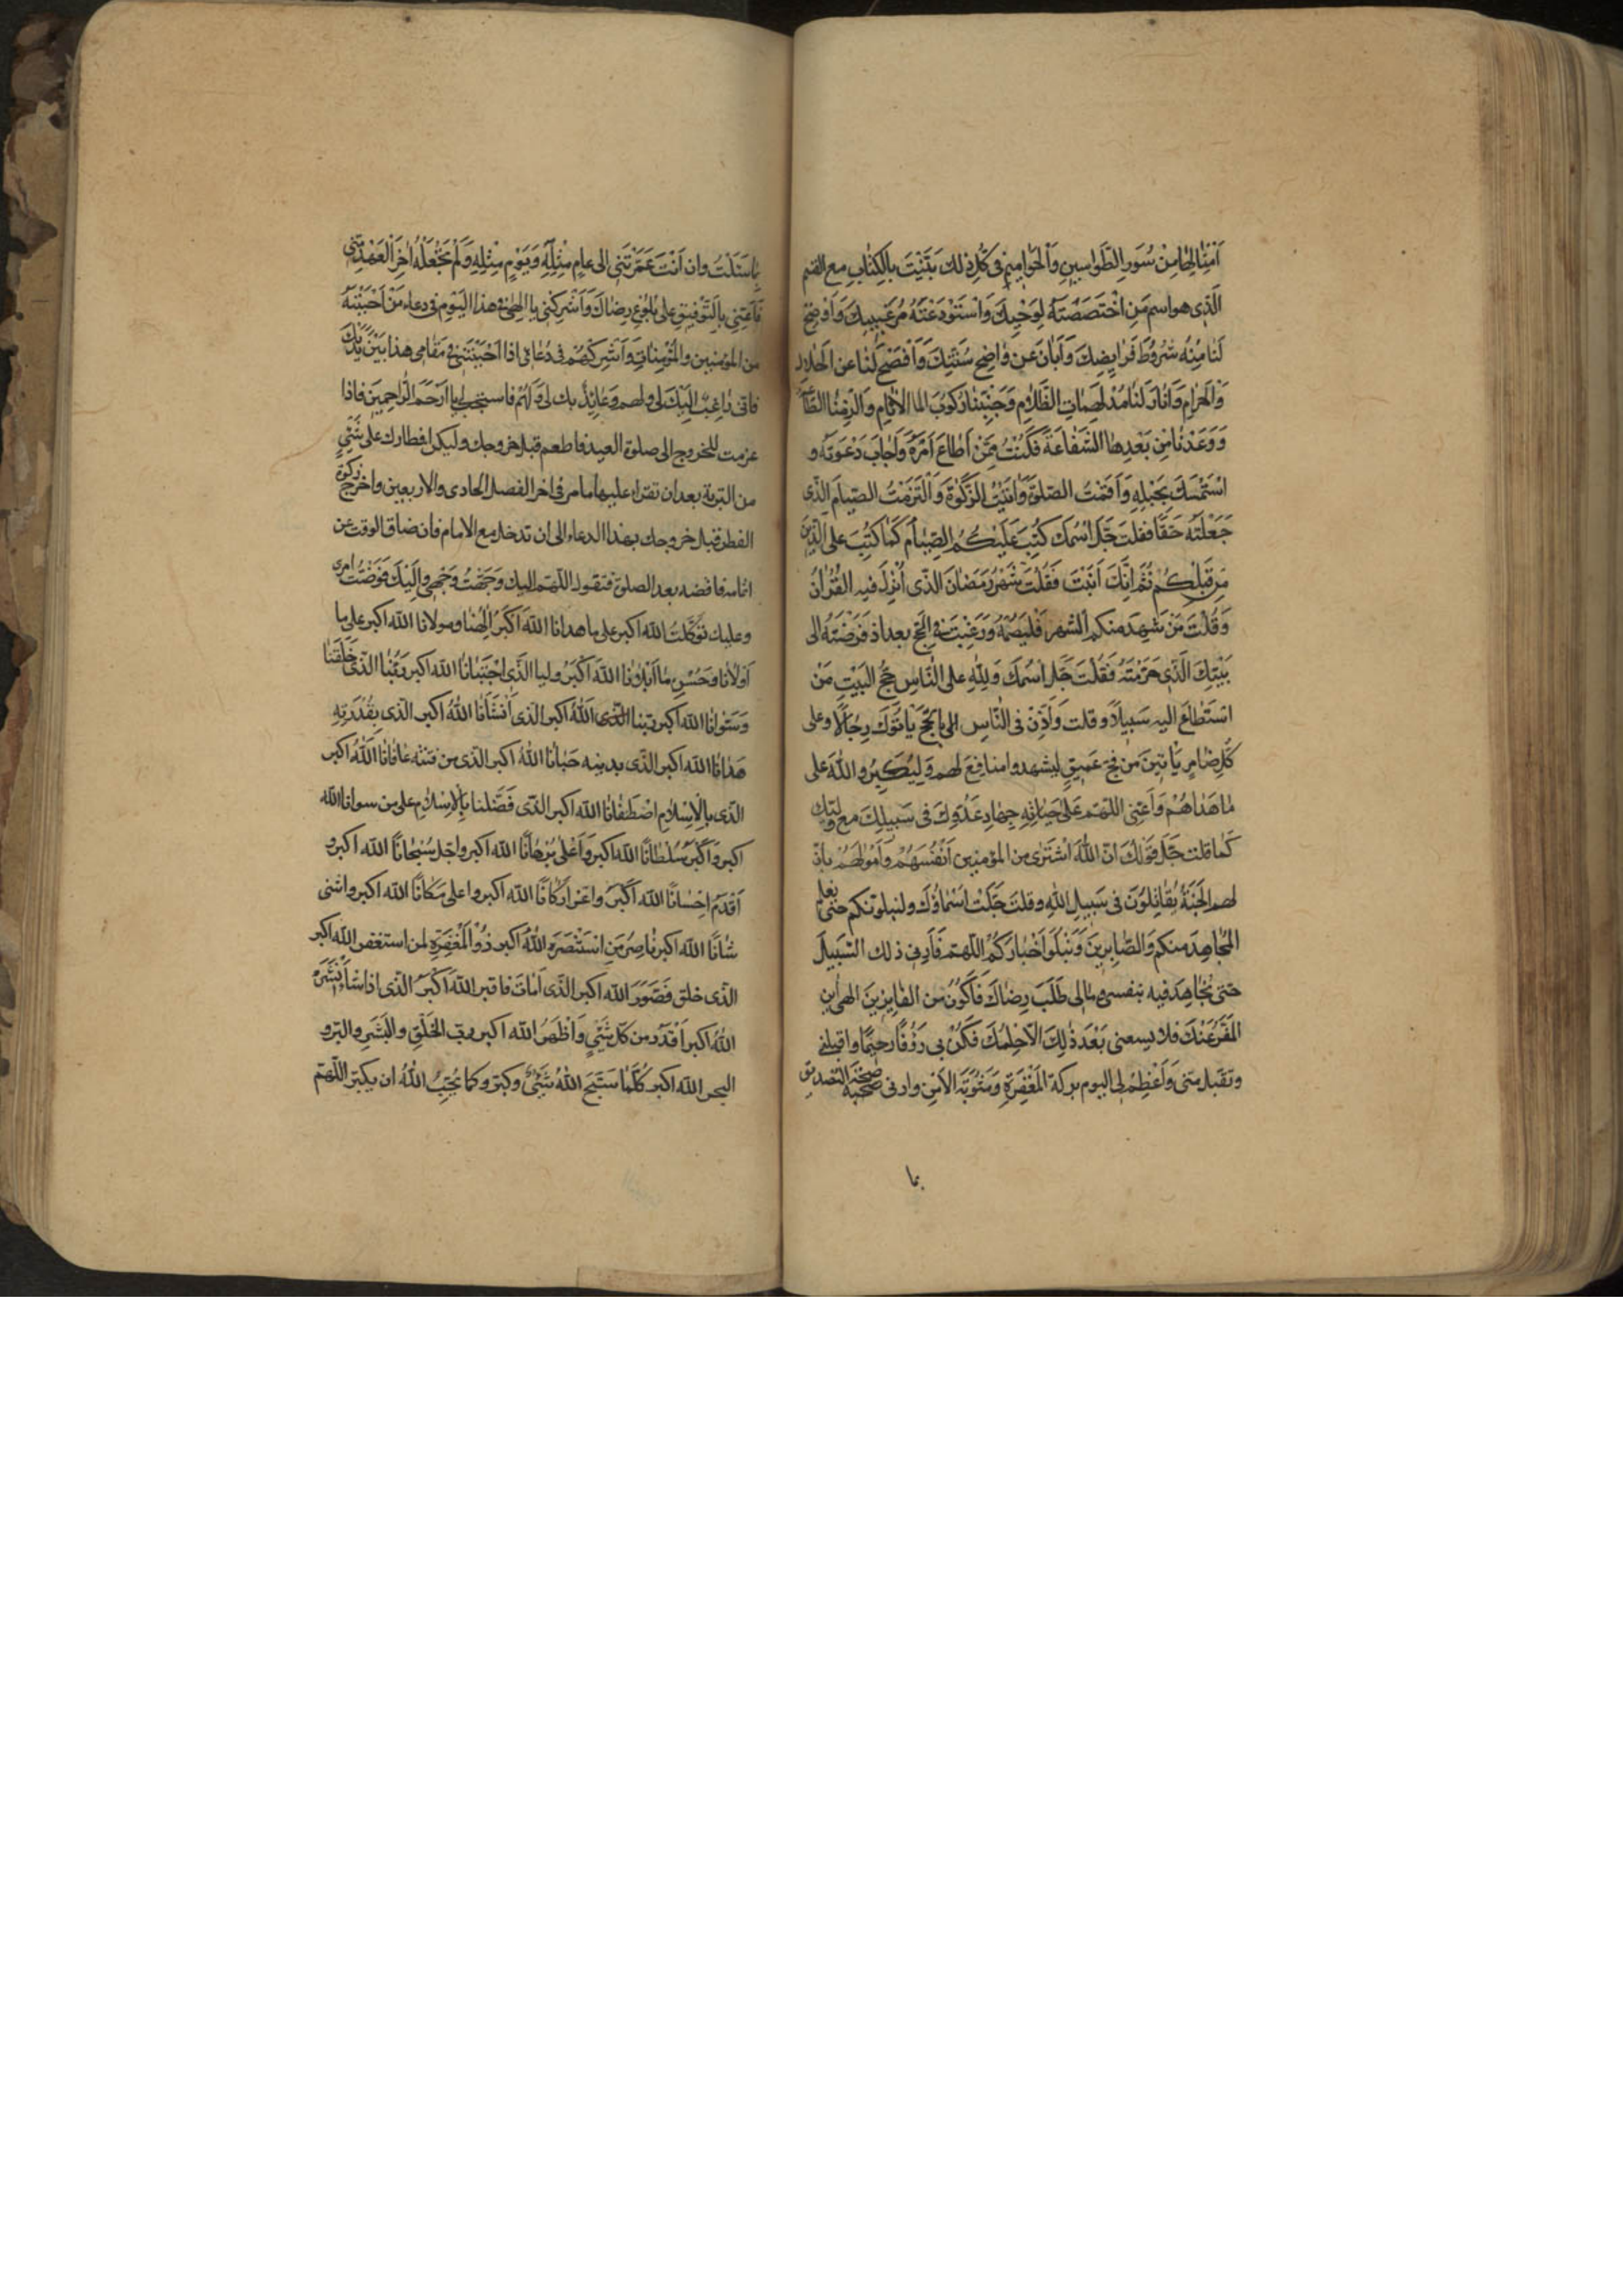 اَمْثٰالِهٰا مِنْ سُوَرِ الطَّوٰاسِينِ وَالْحَوٰامِيمِ فى كُلِّ ذٰلك بَيَّنْتَ بِالْكِتٰابِ مع القسم
الَّذى هو اسم مَنِ اخْتَصَصْتَهُ لِوَحْيِكَ وَاسْتَوْدَعْتَهُ سِرَّ غَيْبِكَ وَاَوْضَحَ
لَنٰا مِنْهُ شُرُوطَ فَرٰايِضِكَ وَاَبٰانَ عَنْ وٰاضِحِ سُنَّتِكَ وَاَفْصَحَ لَنٰا عن الْحَلالِ
وَالْحَرٰامِ وَاَنٰارَ لَنٰا مُدْلَهِمّٰاتِ الظَّلٰامِ وَجَنَّبَنٰا رُكُوبَ الاثٰامِ وَالْزَمَنٰا الطّٰاعَةَ
وَوَعَدَنٰا مِنْ بَعْدِهٰا الشَّفٰاعَةَ فَكُنْتُ مِمَّنْ اَطٰاعَ اَمْرَهُ وَاَجٰابَ دَعْوَتَهُ و
اسْتَمْسَكَ بِحَبْلِهِ وَاَقَمْتُ الصّلوةَ وَاٰتَيْتُ الزَّكٰوةَ وَالْتَزَمْتُ الصِّيٰامَ الَّذى
جَعَلْتَهُ حَقًّا فقلتَ جَلَّ اسْمُكَ كُتِبَ عَلَيْكُمُ الصِّيٰامُ كَمٰا كُتِبَ على الَّذينَ
مِنْ قَبْلِكُمْ ثُمَّ اِنَّكَ اَبَنْتَ فَقُلْتَ شَهْرُ رَمَضٰانَ الَّذى اُنْزِلَ فيه الْقُرْاٰنُ
وَقُلْتَ مَنْ شَهِدَ منكم الشهر فَلْيَصُمْهُ وَرَغَّبْتَ فى الْحَجِّ بعد اذ فَرَضْتَهُ الى
بَيْتِكَ الَّذى حَرَّمْتَهُ فَقُلْتَ جَلَّ اسْمُكَ وَلِلّٰهِ على النّٰاسِ حِجُّ الْبَيْتِ مَنْ
اسْتَطٰاعَ اليه سَبِيلًا وقلت وَاَذِّنْ فى النّٰاسِ بِالْحَجِّ يَأْتُوكَ رِجٰالًا وعلى
كُلِّ ضٰامِرٍ يَأْتِينَ مِنْ كل فَجٍّ عَمِيقٍ ليشهدوا منافعَ لهم وَلِيُكَبِّرُوا اللّٰهَ على
مٰا هَدٰاهُمْ وَاَعِنّى اللّهمّ عَلىٰ جِهٰادِ عَدُوِّكَ فى سَبِيلِكَ مع وليّك
كَمٰا قلت جَلَّ قَوْلُكَ انّ اللّٰهَ اشْتَرىٰ من المؤمنين اَنْفُسَهُمْ وَاَمْوٰالَهُمْ بانّ
لهم الْجَنَّةَ يُقٰاتِلُونَ فى سَبِيلِ اللّٰهِ وقلتَ جَلَّتْ اَسْمٰاؤُكَ ولنبلونّكم حتى نعلم
الْمُجٰاهِدِينَ منكم وَالصّٰابِرِينَ وَنَبْلُوَ اَخْبٰارَكُمُ اللّهمّ فَاَرِنى ذلك السَّبِيلَ
حتى نُجٰاهِدَ فيه بنفسى ومالى طَلَبَ رِضٰاكَ فَاَكُونَ من الفٰايِزِينَ الهى اين
الْمَفَرُّ عَنْكَ فلا يسعنى بَعْدَ ذٰلِكَ الّا حِلْمُكَ فَكُنْ بى رَؤُفًا رَحِيمًا واقبلنى
وتقبل منّى وَاَعْظِمْ لى اليوم بركة الْمَغْفِرَةِ وَمَثُوبَةَ الْاَجْرِ وارنى صحّة التّصديق
بما
بما سَئَلْتُ وان اَنْتَ عَمَّرْتَنى الى عٰامٍ مِثْلِهِ وَيَوْمٍ مِثْلِهِ وَلَمْ تَجْعَلْهُ اٰخِرَ الْعَهْدِ مِنّى
فَاَعِنّى بِالتَّوْفِيقِ على بُلُوغِ رِضٰاكَ وَاَشْرِكْنى يا الهى فى هذا الْيَوْمِ فى دعاء مَنْ اَجَبْتَهُ
من المؤمنين والْمُؤْمِنٰاتِ وَاَشْرِكْهُمْ فى دُعٰائى اذا اَجَبْتَنى فى مَقٰامى هذا بَيْنَ يَدَيْكَ
فانّى رٰاغِبٌ اِلَيْكَ لى ولهم وَعٰائِذٌ بك لى وَلَهُمْ فاستجب لى يا اَرْحَمَ الرّٰاحِمِينَ فاذا
عزمت للخروج الى صلوة العيد فاطعم قبل خروجك وليكن افطارك على شَيْئٍ
من التربة بعد ان تقراء عليها ما مر فى اخر الفصل الحادى والاربعين واخرج زكوة
الفطر قبل خروجك بهذا الدعاء الى ان تدخل مع الامام فان ضاق الوقت عن
اتمامه فاقضه بعد الصلوة فتقول اللّهم اليك وَجَّهْتُ وَجْهى وَاِلَيْكَ فَوَّضْتُ امرى
وعليك تَوَكَّلْتُ اللّٰه اكبر على ما هدانا اللّٰهُ اَكْبَرُ اِلٰهُنٰا ومولانا اللّٰه اكبر على ما
اَوْلٰانٰا وَحُسْنِ مٰا اَبْلٰانٰا اللّٰهُ اَكْبَرُ وليّنا الَّذى اجْتَبٰانٰا اللّٰه اكبر رَبُّنٰا الّذى خَلَقَنٰا
وَسَوّٰانٰا اللّٰه اكبر ربّنا الّذى اللّٰهُ اكبر الّذى اَنْشَأَنٰا اللّٰهُ اكبر الّذى بِقُدْرَتِهِ
هَدٰانٰا اللّٰه اكبر الّذى بدينه حَبٰانٰا اللّٰهُ اكبر الّذى من فتنته عٰافٰانٰا اللّٰهُ اكبر
الّذى بِالْاِسْلٰامِ اصْطَفٰانٰا اللّٰه اكبر الّذى فَضَّلَنا بِالْاِسْلٰامِ على من سوانا اللّٰه
اكبر وَاَكْبَرُ سُلْطٰانًا اللّٰه اكبر وَاَعْلىٰ بُرْهٰانًا اللّٰه اكبر واجلّ سُبْحٰانًا اللّٰه اكبر و
اَقْدَمُ اِحْسٰانًا اللّٰه اَكْبَرُ واعزّ اَرْكٰانًا اللّٰه اكبر واعلى مَكٰانًا اللّٰه اكبر واسنى
شٰانًا اللّٰه اكبر نٰاصِرُ مَنِ اسْتَنْصَرَهُ اللّٰهُ اكبر ذُو الْمَغْفِرَةِ لمن استغفر اللّٰه اكبر
الّذى خلق فَصَوَّرَ اللّٰه اكبر الَّذى اَمٰاتَ فاقبر اللّٰهُ اَكْبَرُ الَّذى اذا شٰاءَ اَنْشَرَهُ
اللّٰهُ اكبر اَقْدَرُ من كلّ شَيْئٍ وَاَظْهَرُ اللّٰه اكبر ربّ الْخَلْقِ والْبَشَرِ والبرّ و
البحر اللّٰه اكبر كُلَّمٰا سَبَّحَ اللّٰهَ شَيْئٌ وكبّر وكما يُحِبُّ اللّٰهُ ان يكبّر اللّهمّ